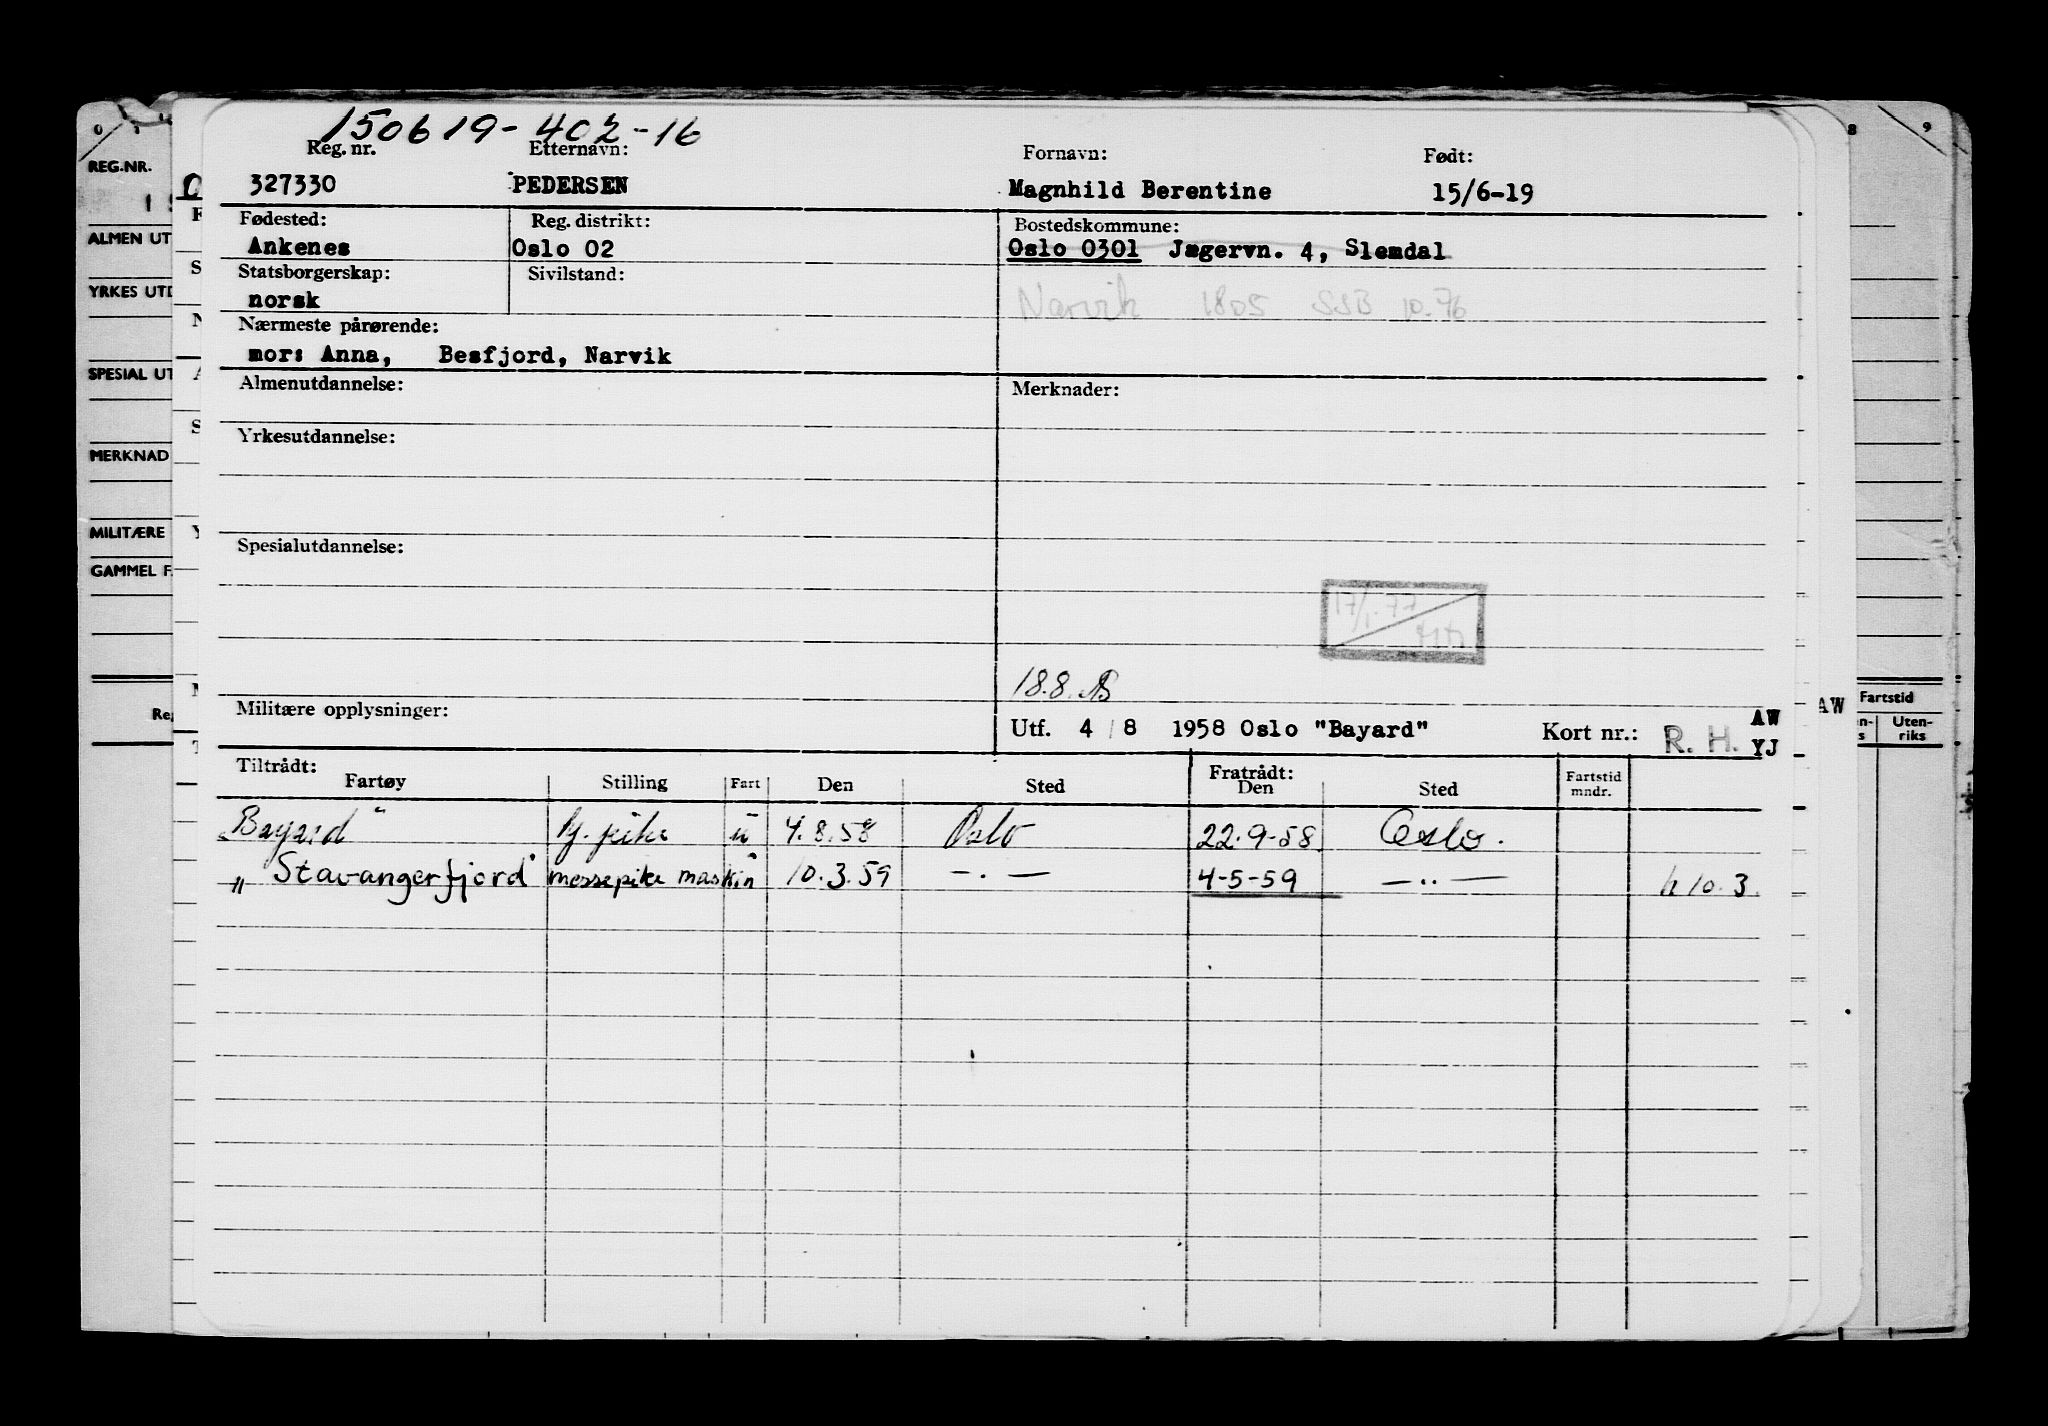 150619-402-16
Reg. nr. Etternavn: Fornavn: Født:
327330 PEDERSEN Magnhild Berentine 15/6-19
Fødested: Reg. distrikt: Bostedskommune:
Ankenes Oslo 02 Oslo 0301 Jægervn. 4, Slemdal
Statsborgerskap: Sivilstand:
norsk Narvik 1805 SSB 10.76
Nærmeste pårørende:
mor: Anna, Besfjord, Narvik
Almenutdannelse: Merknader:
Yrkesutdannelse:
Spesialutdannelse:
17/1-77
18.8.
Militære opplysninger: Utf. 4/8 1958 Oslo "Bayard" Kort nr.: R. H. AW
YJ
Tiltrådt: Fratrådt:
Fartøy Stilling Fart Den Sted Den Sted Fartstid mndr.
"Bayard" pike u 4.8.58 Oslo 22.9-58 Oslo.
"Stavangerfjord" messepike maskin 10.3.59 —.— 4-5-59 —..— 10.3.
REG.NR.
ALMEN UT
YRKES UTD
SPESIAL UT
MERKNAD
MILITÆRE
GAMMEL F.
Reg
8 9
AW
Fartstid
Uten-
riks